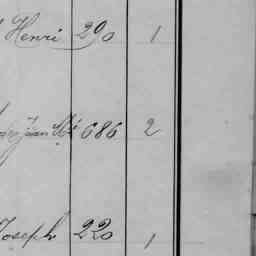 Henri 290 1
Jean 686 2
Joseph 220 1